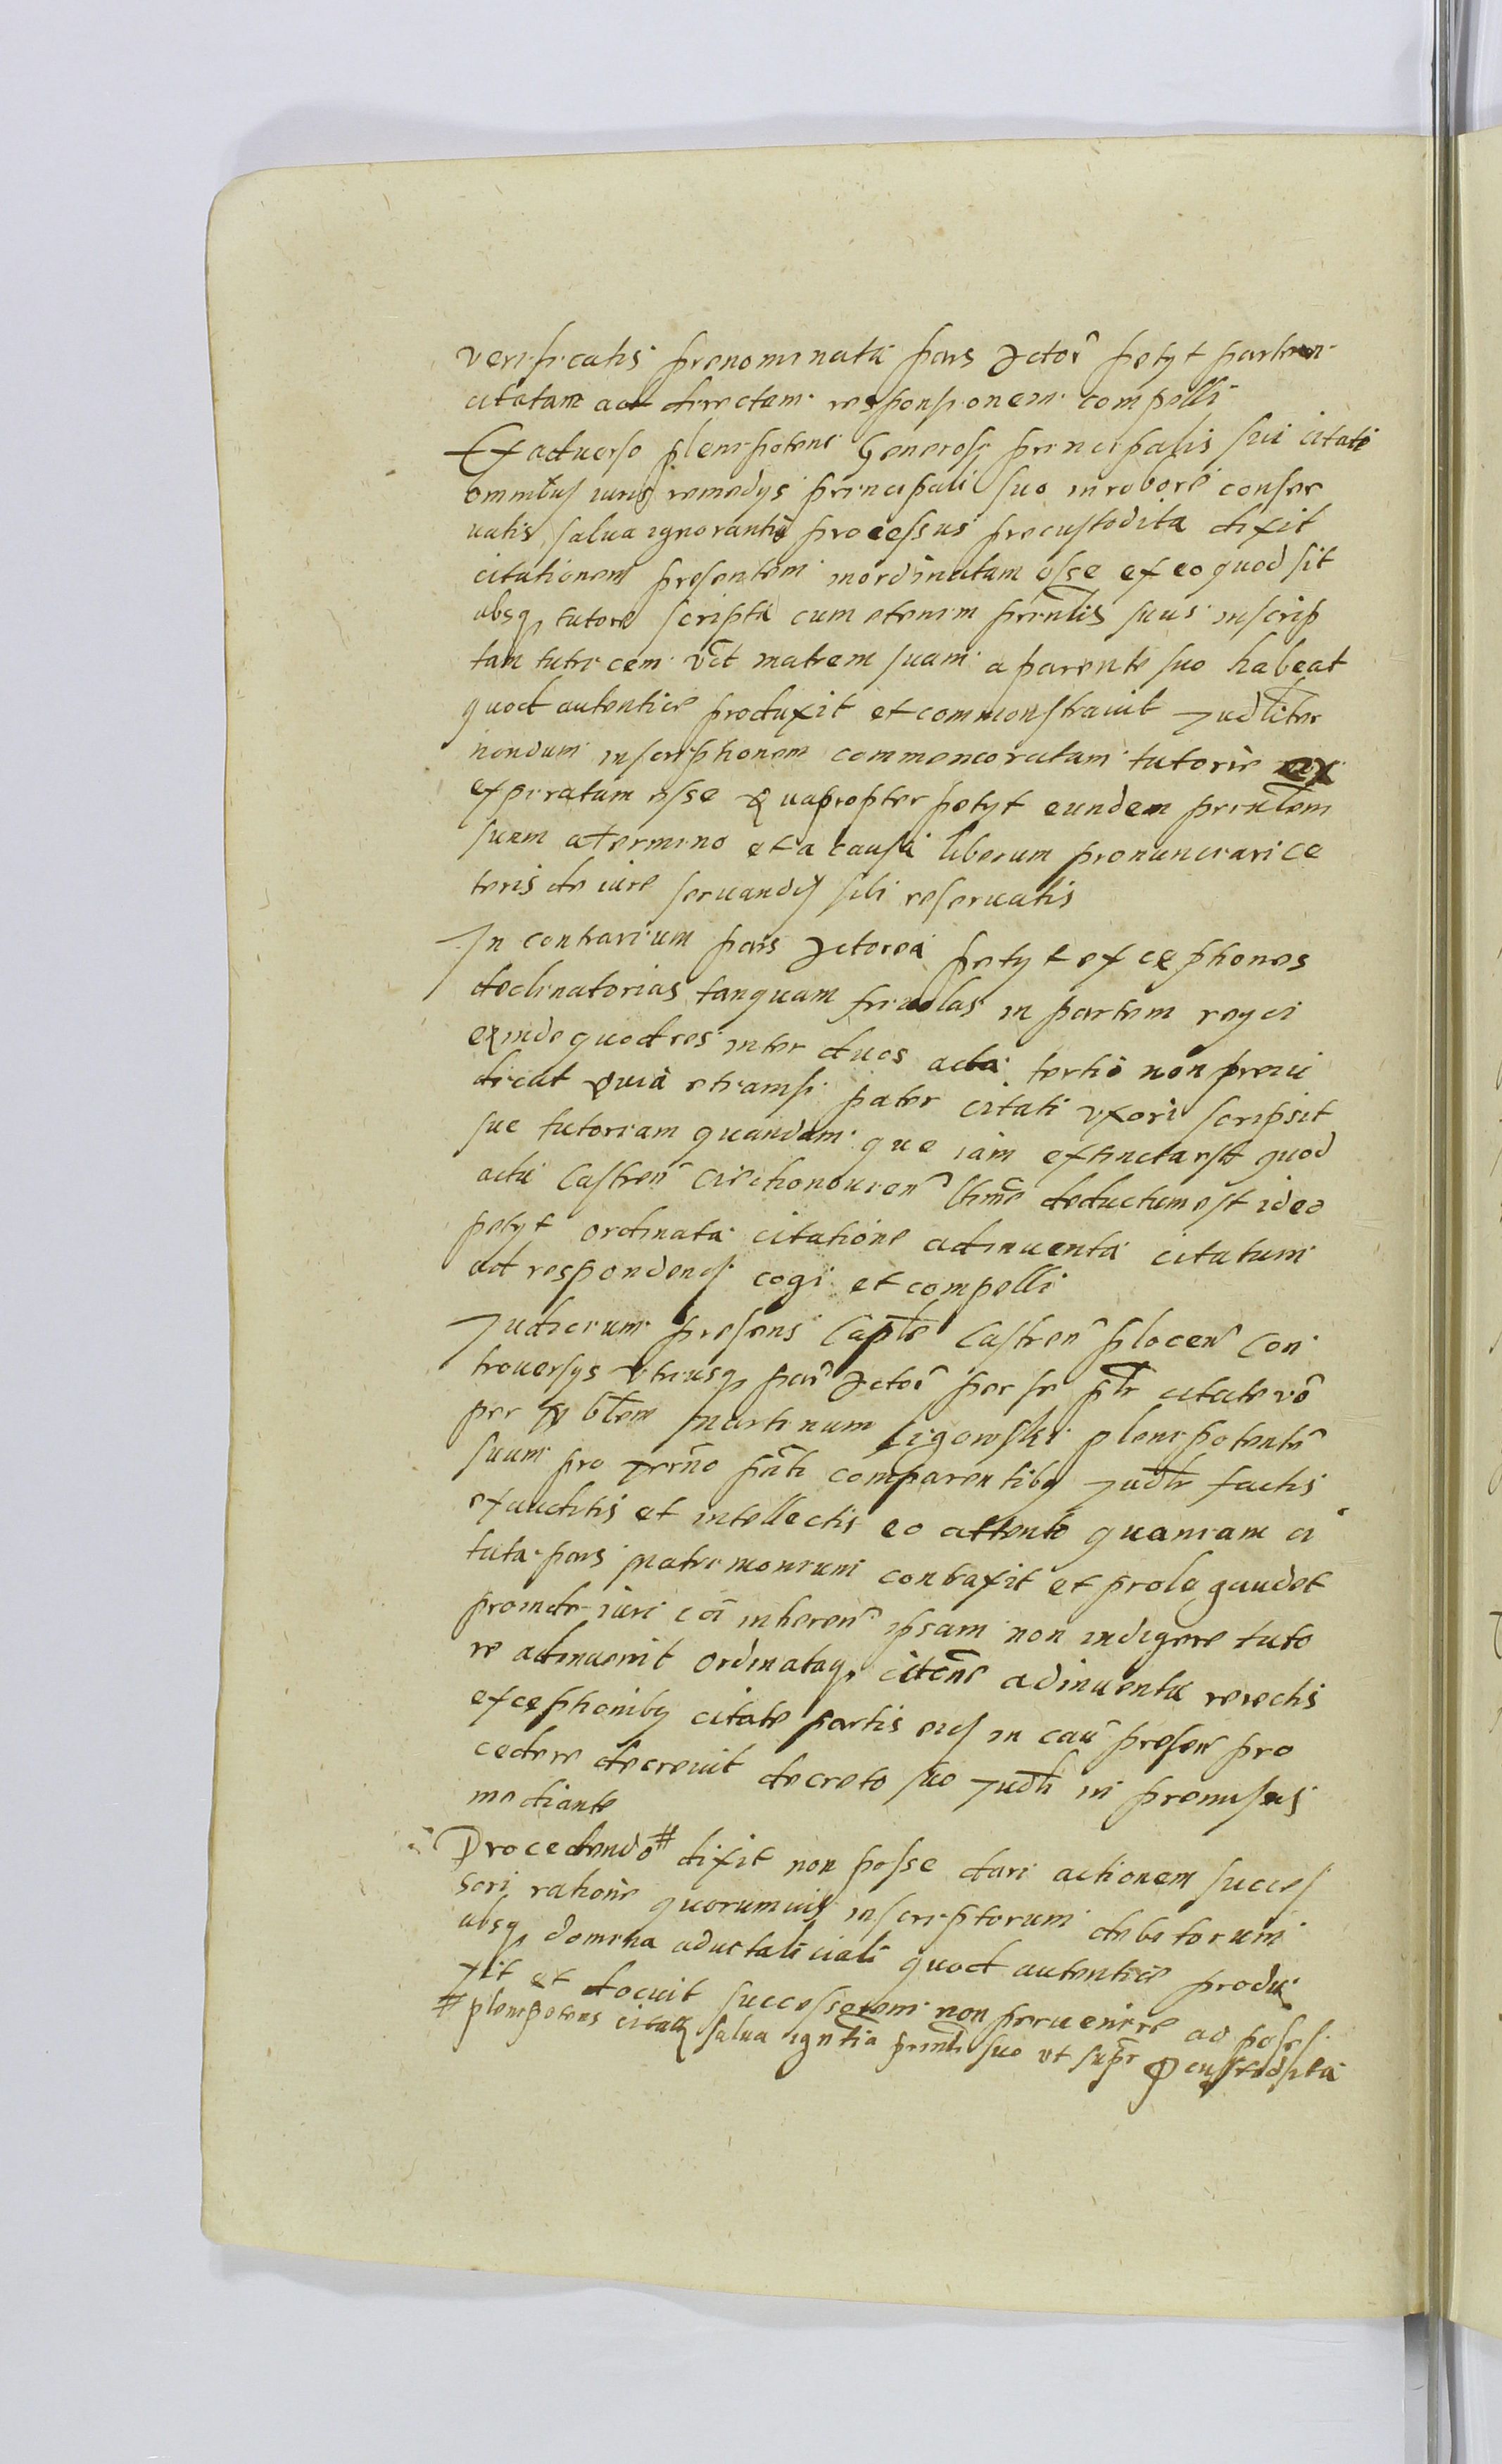 verificatis prenominata pars Actor petyt partem
citatam ad directam responsionem compelli
Ex aduerso plenipotens Generosi principalis sui citati
omnibus iuris remedys principali suo in robore conser
uatis salua ignorantia processus precustodita dixit
citationem presentem inordinatam esse ex eo quod sit
absq tutore scripta cum etenim prinlis suus inscrip
tam tutricem vct matrem suam a parente suo habeat
quod autentice produxit et commonstrauit Judliter
nondum inscriptionem commemoratam tutorie
expiratam esse Quapropter petyt eundem prinlem
suum a termino et a causa liberum pronunciari ce
teris de iure seruandis sibi reseruatis
In contrarium pars Actorea petyt exceptiones
declinatorias tanquam friuolas in partem reyci
exinde quod res inter duos acta tertio non preiu
dicat Quia etiamsi pater citati vxori scripsit
sue tutoriam quandam que iam extincta est quod
actu Castren Ciechonouien ltime deductum est ideo
petyt ordinata citatione adinuenta citatum
ad respondend cogi et compelli
Judicium presens Caple Castren plocen Con
trouersys vtriusq par Actor per se ptr citate vo
per Nblem Martinum Ligowski plenipotente
suum pro Termo pnti comparentibq Judlr factis
exauditis et intellectis eo attento quoniam ci
tata pars matrimonium contraxit et prole gaudet
proinde iuri coi inheren ipsam non indigere tuto
re adinuenit ordinataq citone adinuenta reiectis
exceptionibq citate partis eius in cau presen pro
cedere decreuit decreto suo Judli in premissis
mediante
Procedendo # dixit non posse dari actionem succes
sori ratione quorumuis inscriptorum debitorum
absq domina aduitaliciali quod autentice produ
xit et docuit successorem non peruenire ad posses
# plenipotens citati salua ignntia prinli suo vt supr pcustodita